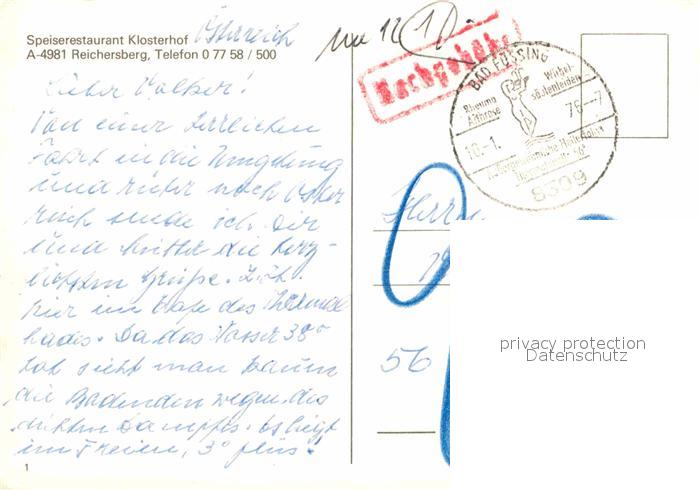 Speiserestaurant Klosterhof Österreich
A-4981 Reichersberg, Telefon 0 77 58 / 500
Lieber Volker!
Von einer herrlichen
Fahrt in die Umgebung
und rüber nach Öster
reich sende ich Dir
und Mutter die herz-
lichsten Grüße.
hier im Cafe des Thermal
bades. Da das Wasser 38°
hat sieht man kaum
die Badenden wegen des
dichten Dampfes. Es liegt
im Freien, 3° plus!
1
Nachgebühr
BAD FÜSSING
Rheuma
Arthrose
Wirbel-
säulenleiden
10.-1. 76.-7
8399
Herrn
56
privacy protection
Datenschutz